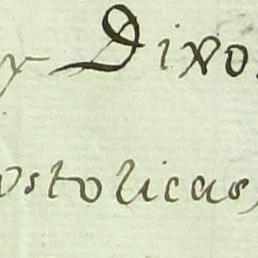 y Dixo.
ostolicas,